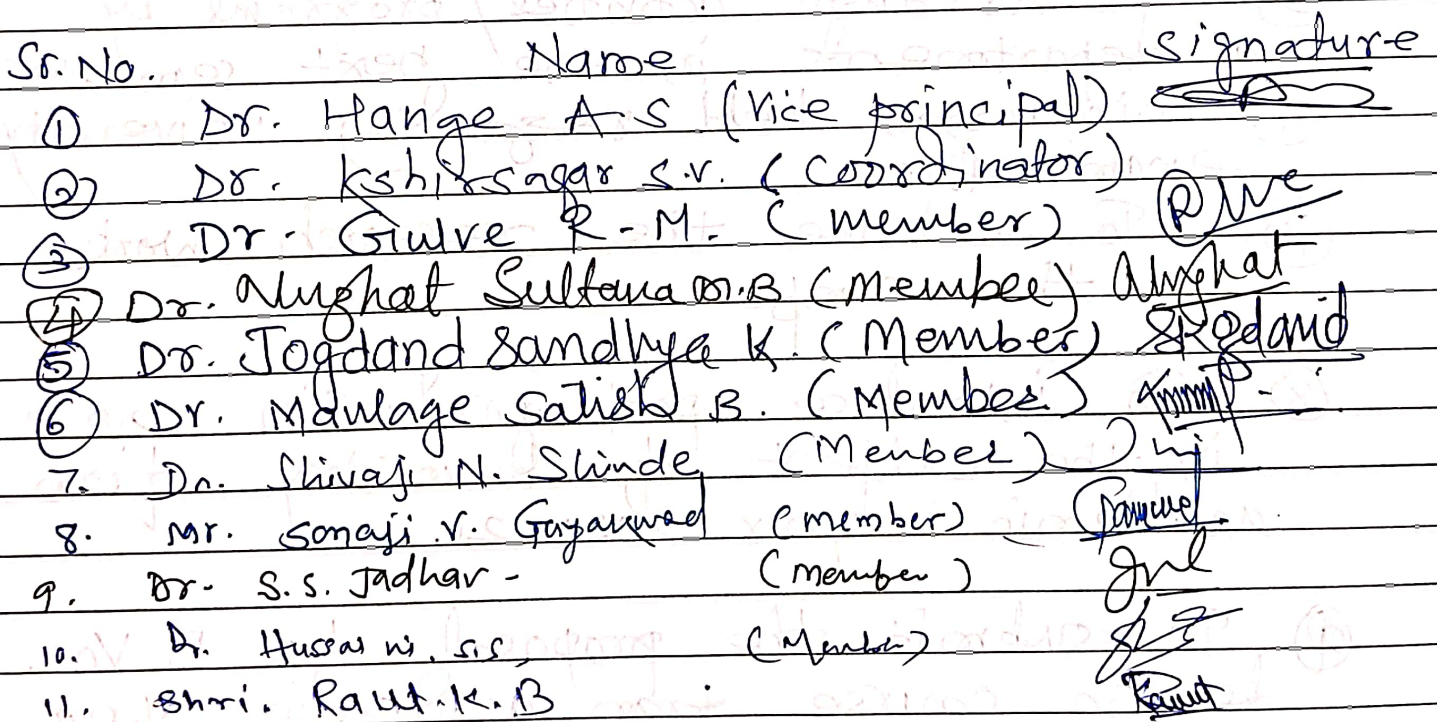 Sr. No. Name Signature
① Dr. Hange A S (Vice principal)
② Dr. Kshirsagar S.V. (Coordinator)
③ Dr. Gulve R.M. (member)
④ Dr. Nughat Sultana M.B (Member) Nughat
⑤ Dr. Jogdand Sandhya K. (Member)
⑥ Dr. Maulage Satish B. (Member)
7. Dr. Shivaji N. Shinde (Member)
8. Mr. Sonaji V. Gayakwad (member)
9. Dr. S.S. Jadhav - (member)
10. Dr. Hussaini S.S. (Member)
11. Shri. Raut. K. B Raut